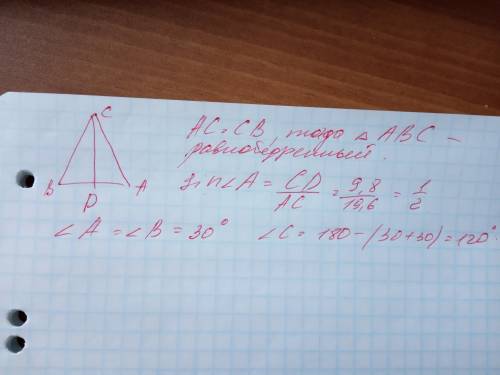 C
B
D
A
AC=CB, тогда △ ABC –
равнобедренный.
sin∠A = CD/AC = 9,8/19,6 = 1/2
∠A = ∠B = 30° ∠C = 180 – (30+30) = 120°